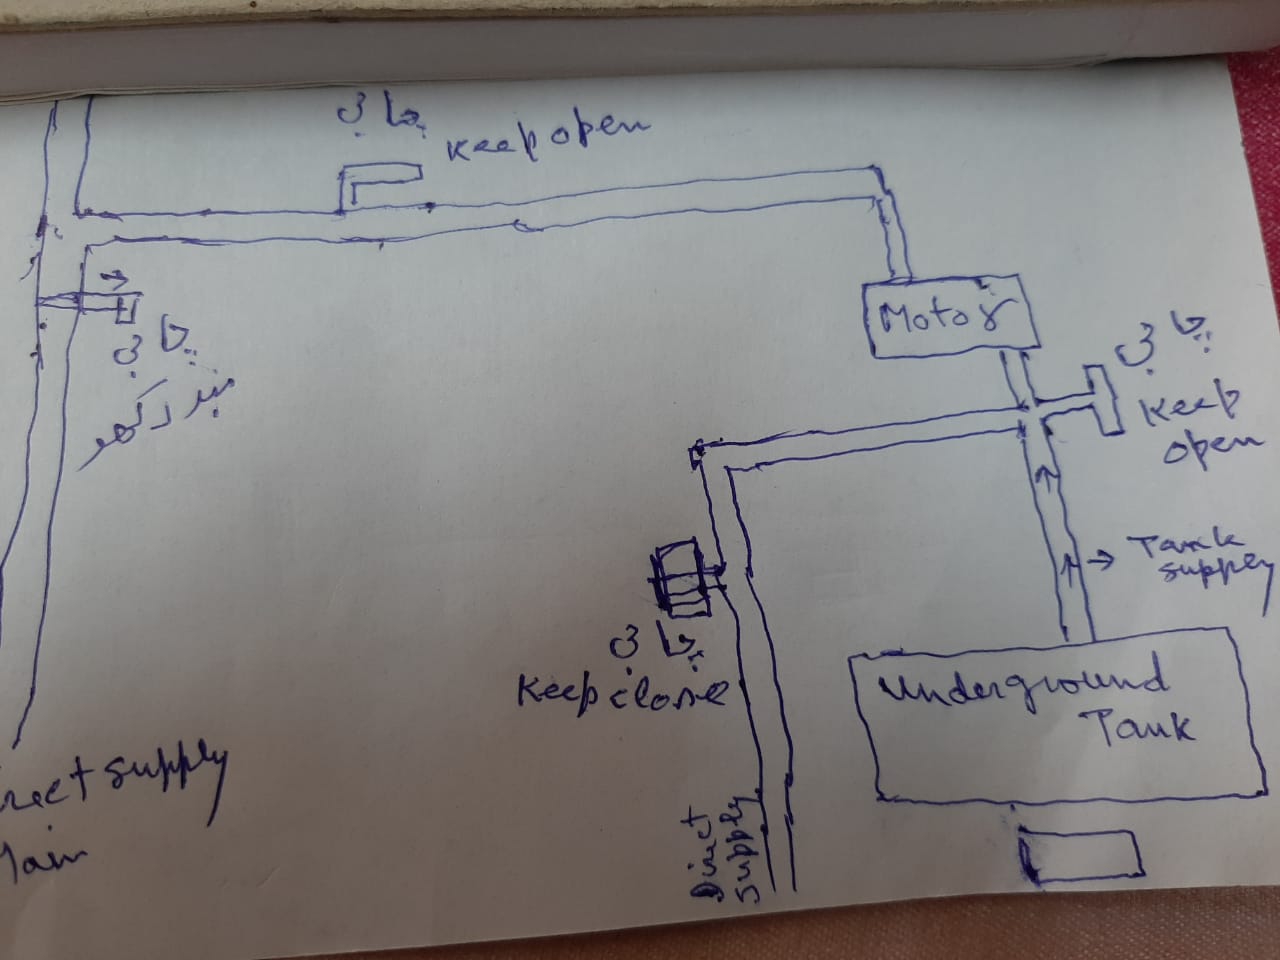 چابی
Keep open
Motor
چابی
Keep
open
چابی
بند رکھو
Tank
supply
چابی
Keep close
Underground
Tank
rect supply
Main
Direct
supply